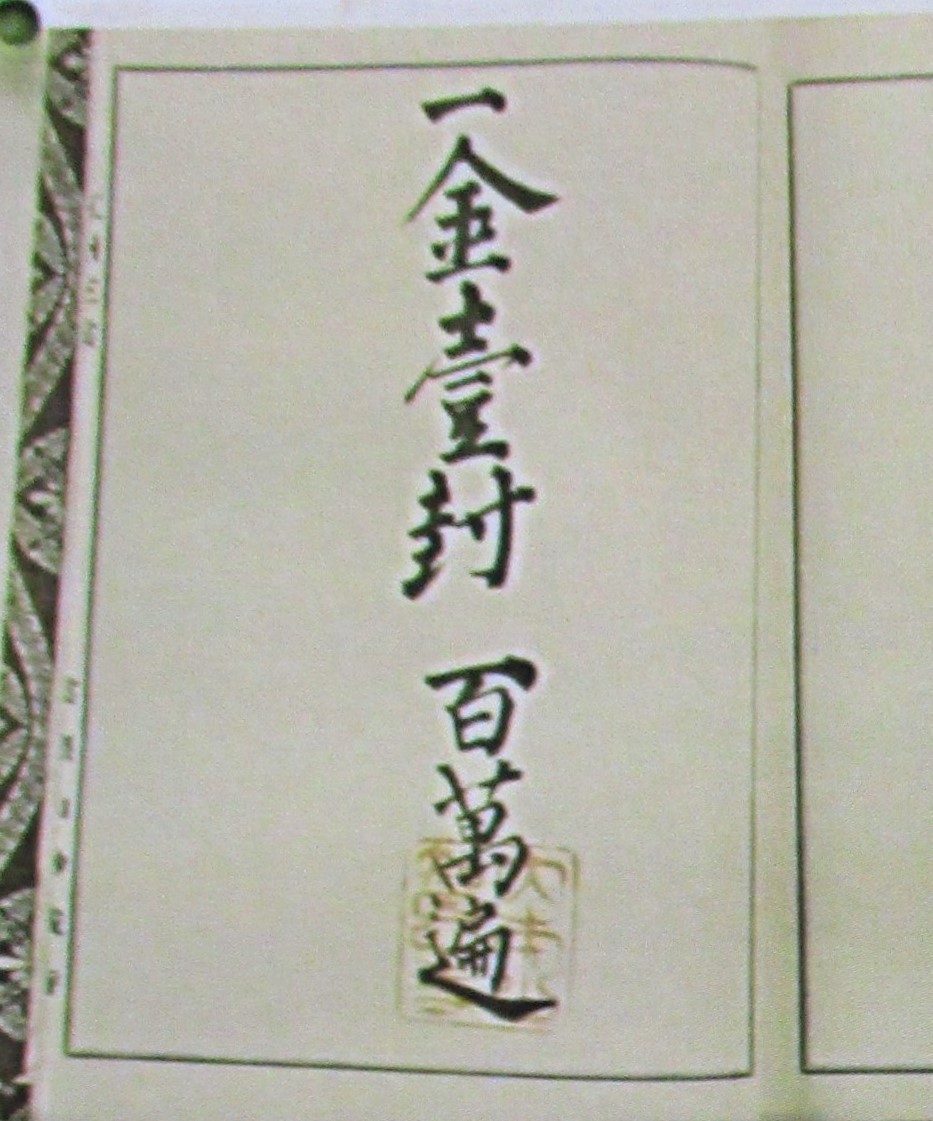 一金壹封 百萬遍